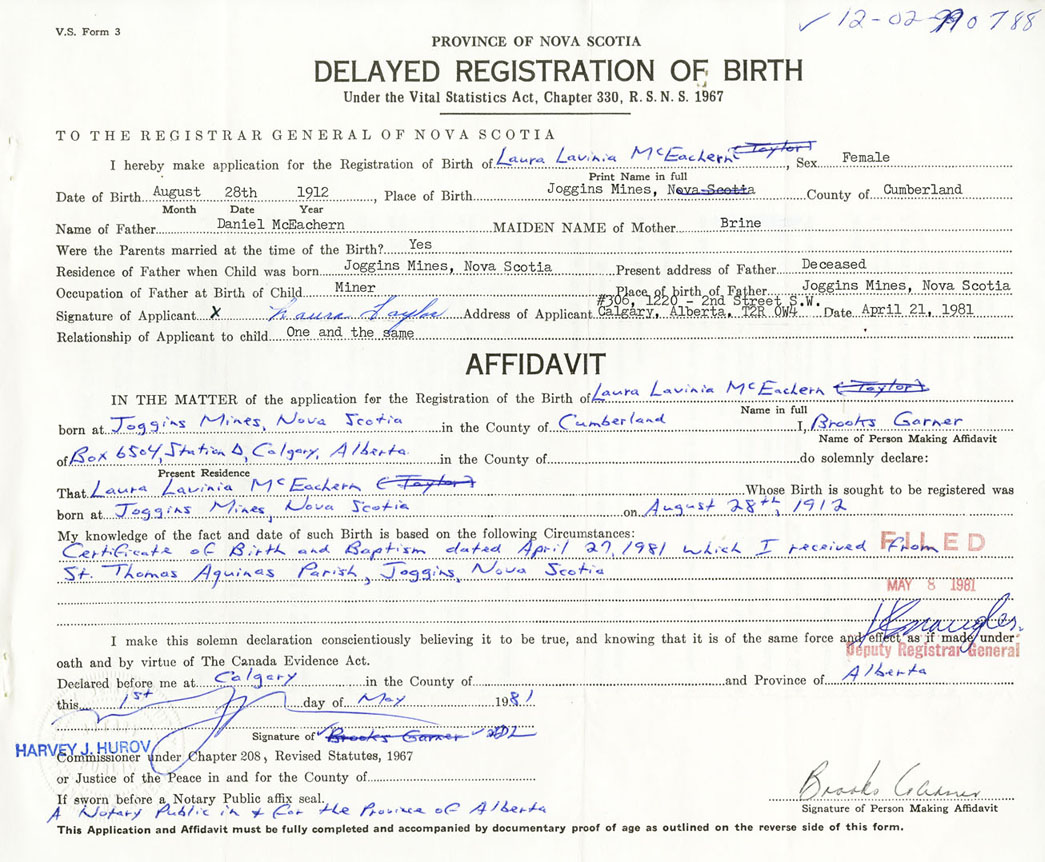 V.S. Form 3
✓ 12-02-990788
PROVINCE OF NOVA SCOTIA
DELAYED REGISTRATION OF BIRTH
Under the Vital Statistics Act, Chapter 330, R. S. N. S. 1967
TO THE REGISTRAR GENERAL OF NOVA SCOTIA
I hereby make application for the Registration of Birth of Laura Lavinia McEachern (Taylor), Sex Female
Print Name in full
Date of Birth August 28th 1912, Place of Birth Joggins Mines, Nova Scotia County of Cumberland
Month Date Year
Name of Father Daniel McEachern MAIDEN NAME of Mother Brine
Were the Parents married at the time of the Birth? Yes
Residence of Father when Child was born Joggins Mines, Nova Scotia Present address of Father Deceased
Occupation of Father at Birth of Child Miner Place of birth of Father Joggins Mines, Nova Scotia
#306, 1220 - 2nd Street S.W.
Signature of Applicant X Laura Taylor Address of Applicant Calgary, Alberta, T2R 0W4 Date April 21, 1981
Relationship of Applicant to child One and the same
AFFIDAVIT
IN THE MATTER of the application for the Registration of the Birth of Laura Lavinia McEachern (Taylor)
Name in full
born at Joggins Mines, Nova Scotia in the County of Cumberland I, Brooks Garner
Name of Person Making Affidavit
of Box 6504, Station D, Calgary, Alberta in the County of do solemnly declare:
Present Residence
That Laura Lavinia McEachern (Taylor) Whose Birth is sought to be registered was
born at Joggins Mines, Nova Scotia on August 28th, 1912
My knowledge of the fact and date of such Birth is based on the following Circumstances:
Certificate of Birth and Baptism dated April 27, 1981 which I received from
FILED
St. Thomas Aquinas Parish, Joggins, Nova Scotia
MAY 8 1981
I make this solemn declaration conscientiously believing it to be true, and knowing that it is of the same force and effect as if made under
Deputy Registrar General
oath and by virtue of The Canada Evidence Act.
Declared before me at Calgary in the County of and Province of Alberta
this 1st day of May 1981
Signature of ✓ Brooks Garner ✓
HARVEY J. HUROV
Commissioner under Chapter 208, Revised Statutes, 1967
or Justice of the Peace in and for the County of
If sworn before a Notary Public affix seal.
A Notary Public in & for the Province of Alberta
Brooks Garner
Signature of Person Making Affidavit
This Application and Affidavit must be fully completed and accompanied by documentary proof of age as outlined on the reverse side of this form.